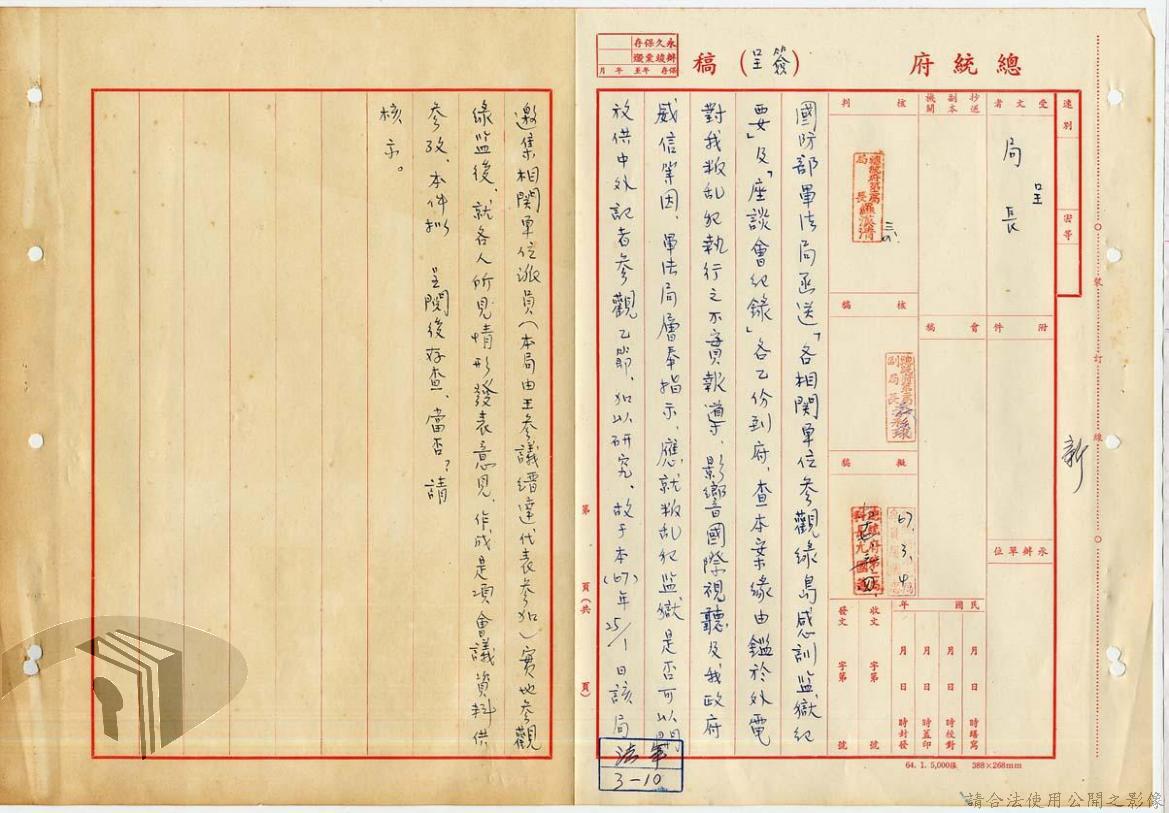 總統府（簽呈）稿
永久保存
辦竣業燬
保存 年至 年 月
速別
密等
受文者
呈
局長
抄送副本機關
附件
會稿
核判
核稿
擬稿
承辦單位
67.3.4
新
裝
訂
線
國防部軍法局函送「各相関單位參觀綠島感訓監獄紀
要」及「座談會紀錄」各乙份到府，查本案緣由鑑於外電
對我叛乱犯執行之不實報導，影響國際視聽及我政府
威信等因，軍法局層奉指示，應就叛乱犯監獄是否可以開
放供中外記者參觀乙節，加以研究，故于本(67)年25/1日該局
邀集相関單位派員(本局由王參議縉達代表參加)實地參觀
綠監後，就各人所見情形發表意見，作成是項會議資料供
參攷，本件擬 呈閱後存查，當否？請
核示。
民國 年 月 日 時繕寫
月 日 時校對
月 日 時蓋印
月 日 時封發
收文 字第 號
發文 字第 號
第 頁(共 頁)
軍法
3-10
64. 1. 5,000張 388×268mm
請合法使用公開之影像